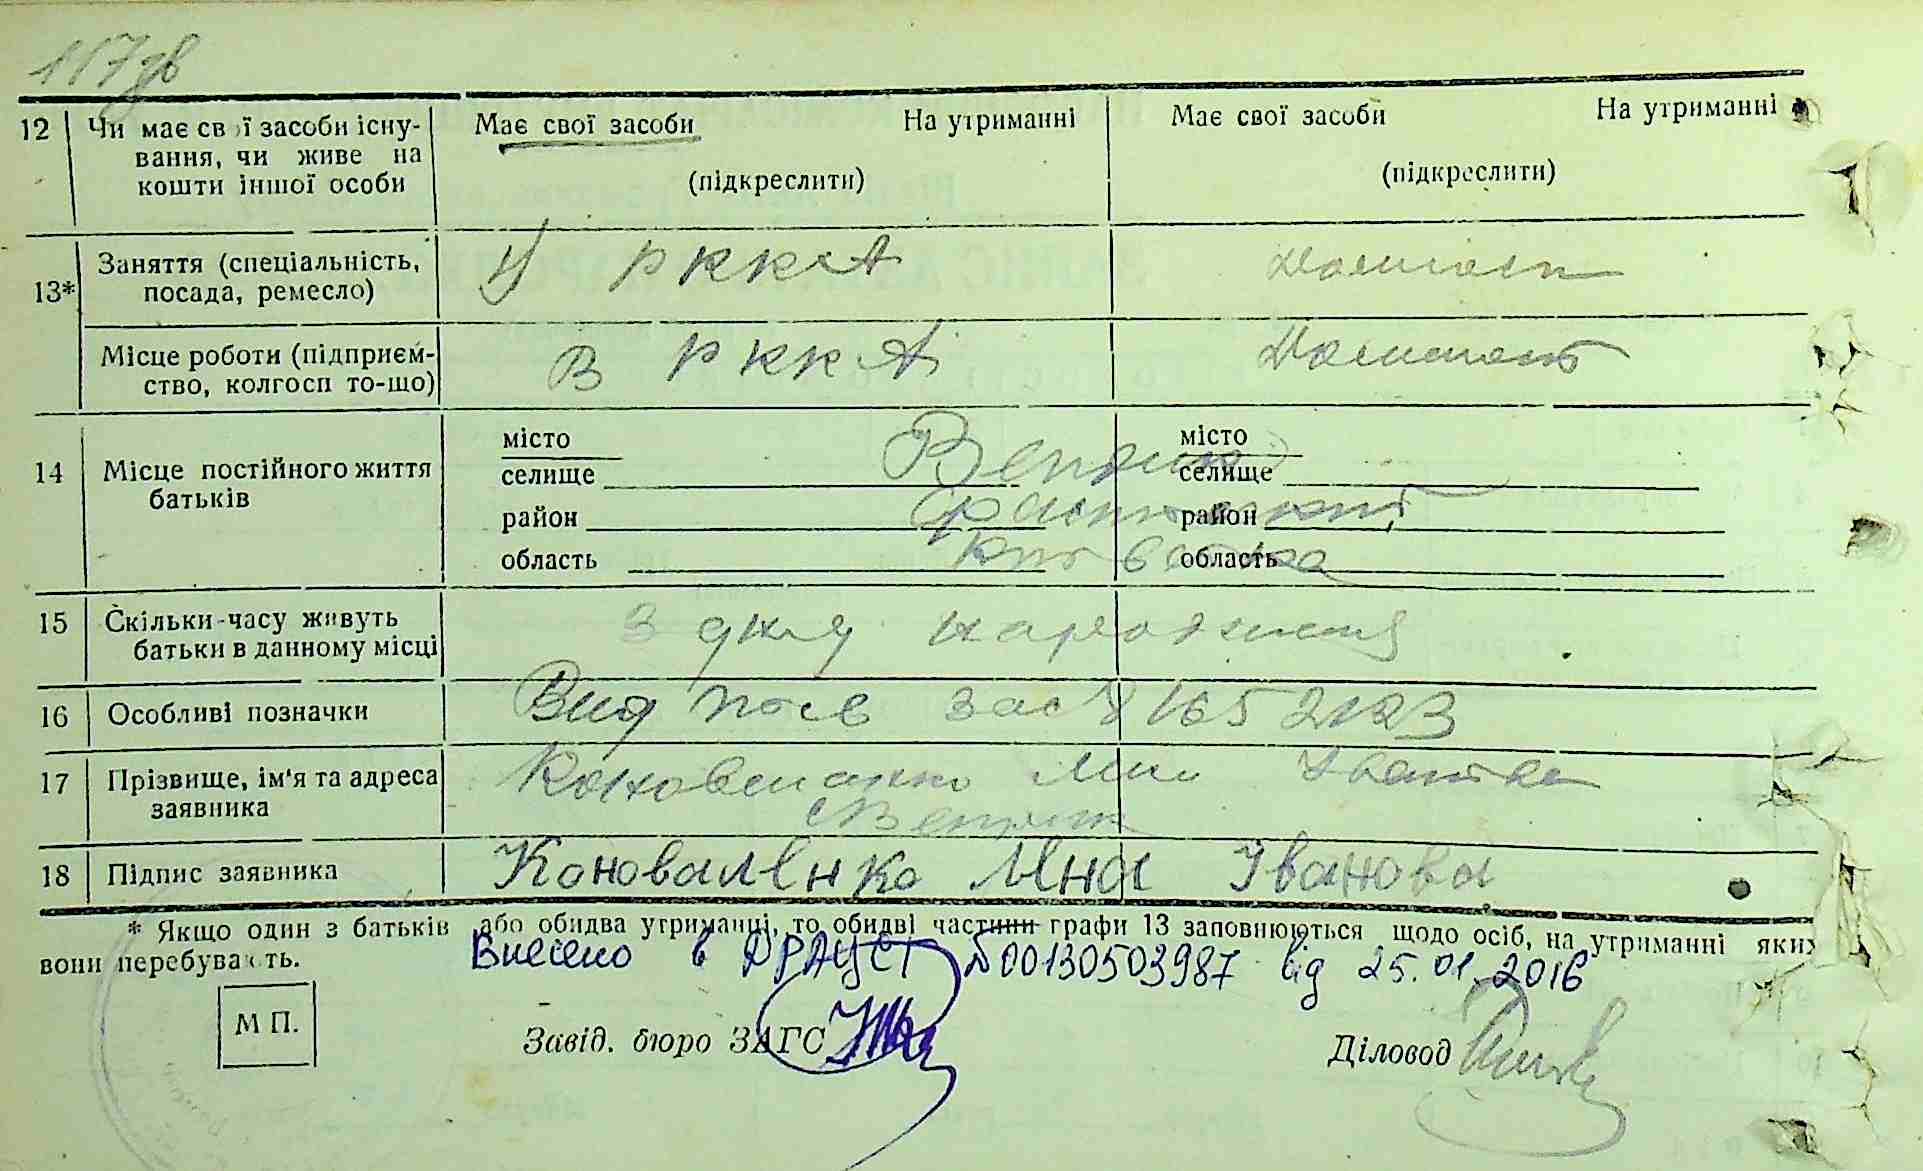 117зв
12 Чи має свої засоби існу- Має свої засоби На утриманні Має свої засоби На утриманні
вання, чи живе на
кошти іншої особи (підкреслити) (підкреслити)
13* Заняття (спеціальність, У РККА
посада, ремесло)
Місце роботи (підприєм- В РККА
ство, колгосп то-що)
14 Місце постійного життя місто місто
батьків селище Веприк селище
район район
область область
15 Скільки часу живуть З дня народження
батьки в данному місці
16 Особливі позначки
17 Прізвище, ім'я та адреса Коноваленко Івановна
заявника Веприк
18 Підпис заявника Коноваленко Мна Іванова
* Якщо один з батьків або обидва утриманці, то обидві частини графи 13 заповнюються щодо осіб, на утриманні яких
вони перебувають.
Внесено в ДРАЦСГ №00130503987 від 25.01.2016
М П. Завід. бюро ЗАГС Діловод